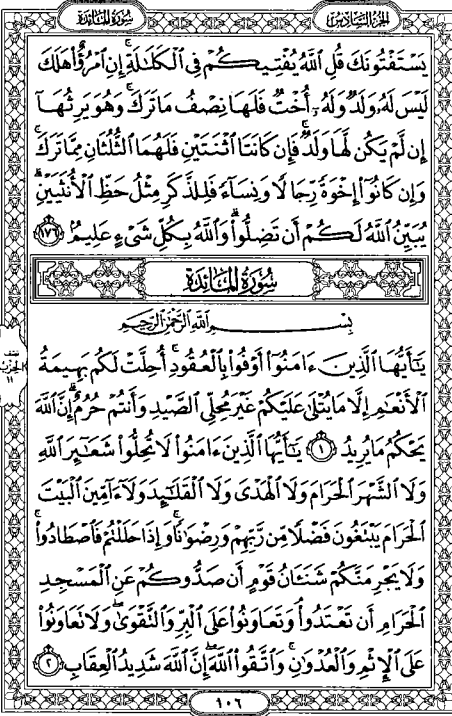 الجزء السادس
سورة المائدة
يَسْتَفْتُونَكَ قُلِ ٱللَّهُ يُفْتِيكُمْ فِى ٱلْكَلَـٰلَةِ ۚ إِنِ ٱمْرُؤٌا۟ هَلَكَ
لَيْسَ لَهُۥ وَلَدٌ وَلَهُۥٓ أُخْتٌ فَلَهَا نِصْفُ مَا تَرَكَ ۚ وَهُوَ يَرِثُهَآ
إِن لَّمْ يَكُن لَّهَا وَلَدٌ ۚ فَإِن كَانَتَا ٱثْنَتَيْنِ فَلَهُمَا ٱلثُّلُثَانِ مِمَّا تَرَكَ ۚ
وَإِن كَانُوٓا۟ إِخْوَةً رِّجَالًا وَنِسَآءً فَلِلذَّكَرِ مِثْلُ حَظِّ ٱلْأُنثَيَيْنِ ۗ
يُبَيِّنُ ٱللَّهُ لَكُمْ أَن تَضِلُّوا۟ ۗ وَٱللَّهُ بِكُلِّ شَىْءٍ عَلِيمٌۢ ١٧٦
سُورَةُ المَائدة
بِسْمِ ٱللَّهِ ٱلرَّحْمَـٰنِ ٱلرَّحِيمِ
يَـٰٓأَيُّهَا ٱلَّذِينَ ءَامَنُوٓا۟ أَوْفُوا۟ بِٱلْعُقُودِ ۚ أُحِلَّتْ لَكُم بَهِيمَةُ
ٱلْأَنْعَـٰمِ إِلَّا مَا يُتْلَىٰ عَلَيْكُمْ غَيْرَ مُحِلِّى ٱلصَّيْدِ وَأَنتُمْ حُرُمٌ ۗ إِنَّ ٱللَّهَ
يَحْكُمُ مَا يُرِيدُ ١ يَـٰٓأَيُّهَا ٱلَّذِينَ ءَامَنُوا۟ لَا تُحِلُّوا۟ شَعَـٰٓئِرَ ٱللَّهِ
وَلَا ٱلشَّهْرَ ٱلْحَرَامَ وَلَا ٱلْهَدْىَ وَلَا ٱلْقَلَـٰٓئِدَ وَلَآ ءَآمِّينَ ٱلْبَيْتَ
ٱلْحَرَامَ يَبْتَغُونَ فَضْلًا مِّن رَّبِّهِمْ وَرِضْوَٰنًا ۚ وَإِذَا حَلَلْتُمْ فَٱصْطَادُوا۟ ۚ
وَلَا يَجْرِمَنَّكُمْ شَنَـَٔانُ قَوْمٍ أَن صَدُّوكُمْ عَنِ ٱلْمَسْجِدِ
ٱلْحَرَامِ أَن تَعْتَدُوا۟ ۘ وَتَعَاوَنُوا۟ عَلَى ٱلْبِرِّ وَٱلتَّقْوَىٰ ۖ وَلَا تَعَاوَنُوا۟
عَلَى ٱلْإِثْمِ وَٱلْعُدْوَٰنِ ۚ وَٱتَّقُوا۟ ٱللَّهَ ۖ إِنَّ ٱللَّهَ شَدِيدُ ٱلْعِقَابِ ٢
نصف
الحزب
١١
١٠٦